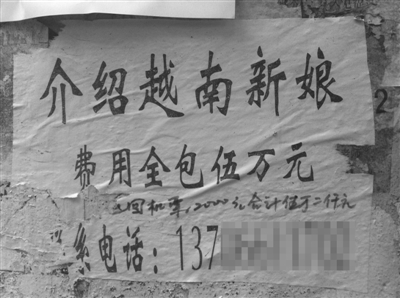 介绍越南新娘
费用全包伍万元
回机票,2000元合计伍万二仟元
系电话：137
2